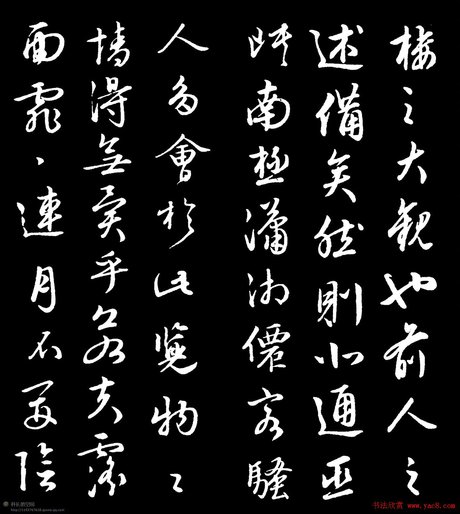 樓之大觀也前人之
述備矣然則北通巫
峽南極瀟湘僊客騷
人多會於此覽物之
情得無異乎若夫霪
雨霏〻連月不開陰
书法欣赏 www.yac8.com